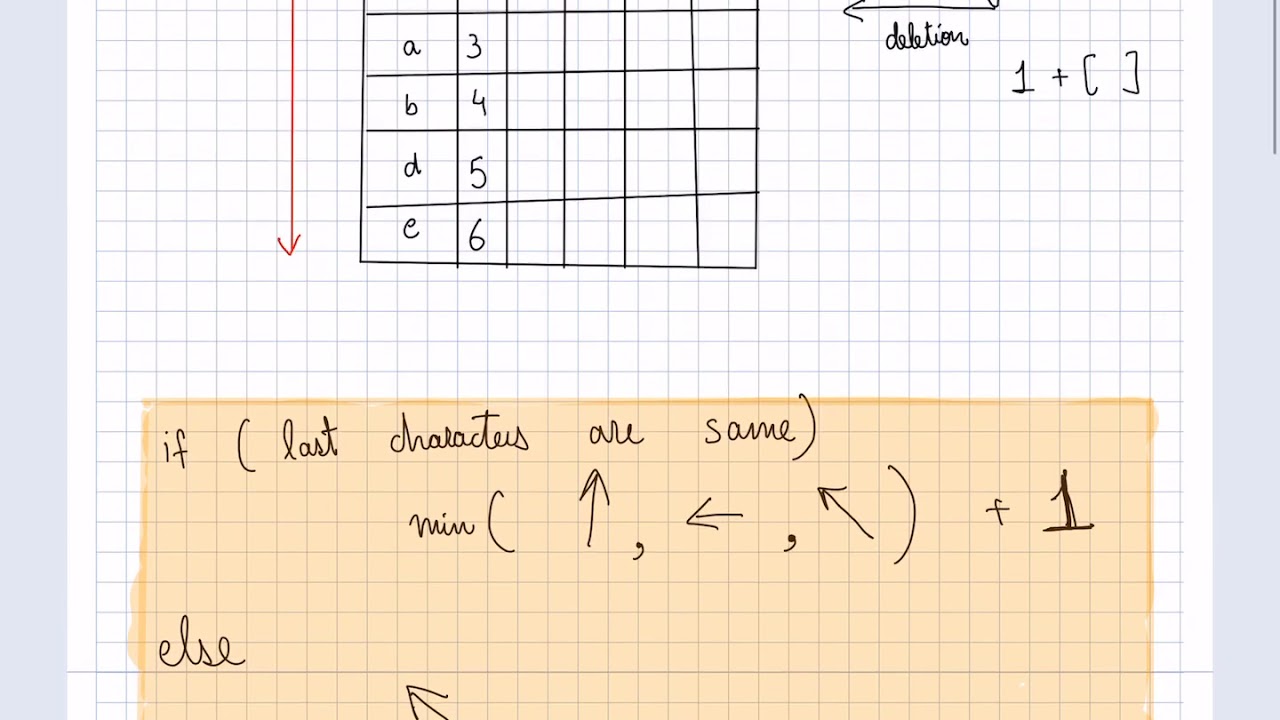 deletion
1 + [ ]
a 3
b 4
d 5
e 6
if ( last characters are same)
min( ↑ , ← , ↖ ) + 1
else
↖